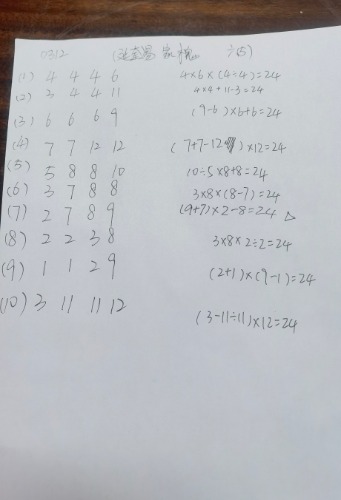 0312
(1) 4 4 4 6 4×6×(4÷4)=24
(2) 3 4 4 11 4×4+11-3=24
(3) 6 6 6 9 (9-6)×6+6=24
(4) 7 7 12 12 (7+7-12)×12=24
(5) 5 8 8 10 10÷5×8+8=24
(6) 3 7 8 8 3×8×(8-7)=24
(7) 2 7 8 9 (9+7)×2-8=24 △
(8) 2 2 3 8 3×8×2÷2=24
(9) 1 1 2 9 (2+1)×(9-1)=24
(10) 3 11 11 12 (3-11÷11)×12=24